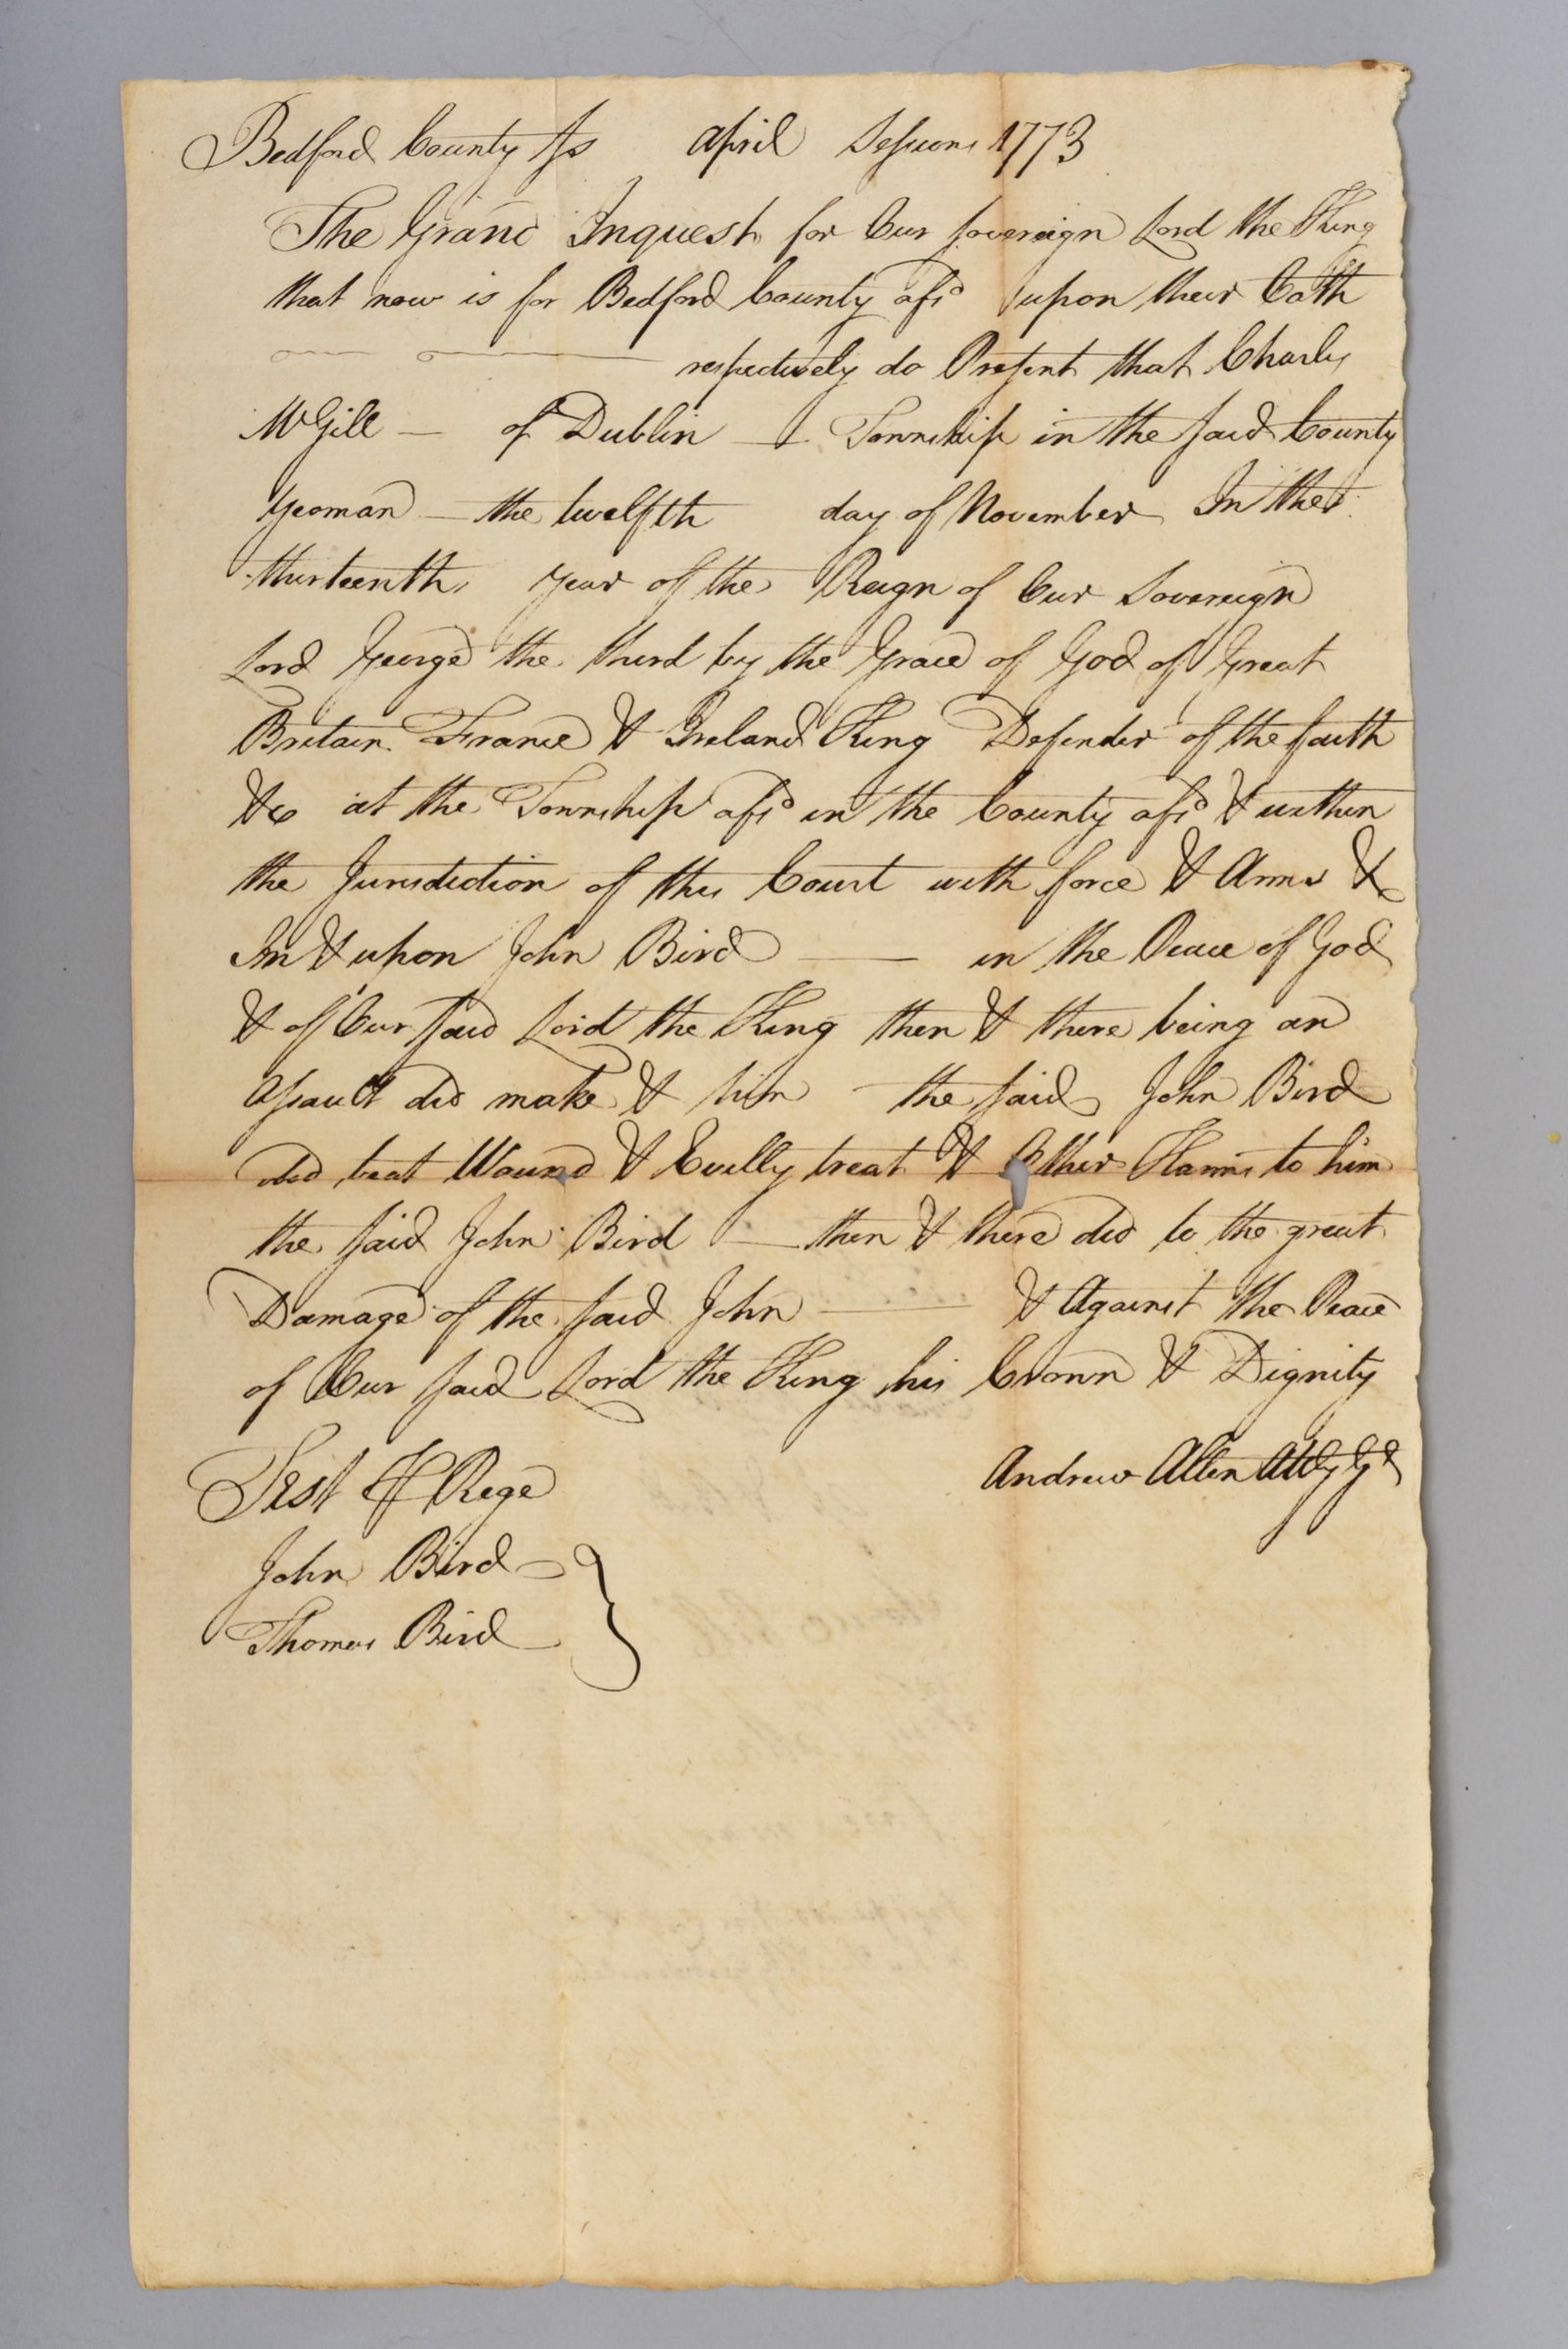 Bedford County Ss April Sessions 1773
The Grand Inquest for Our Sovereign Lord the King
that now is for Bedford County afsd upon their Oath
respectively do Present that Charles
McGill — of Dublin — Township in the said County
Yeoman — the twelfth day of November In the
thirteenth year of the Reign of Our Sovereign
Lord George the third by the Grace of God of Great
Britain France & Ireland King Defender of the faith
&c at the Township afsd in the County afsd & within
the Jurisdiction of this Court with force & Arms &c
In & upon John Bird — in the Peace of God
& of Our said Lord the King then & there being an
Assault did make & him the said John Bird
did beat Wound & Evilly treat & Other Harms to him
the said John Bird — then & there did to the great
Damage of the said John — & Against the Peace
of Our said Lord the King his Crown & Dignity
Andrew Allen Atty Gl
Test P Rege
John Bird
Thomas Bird